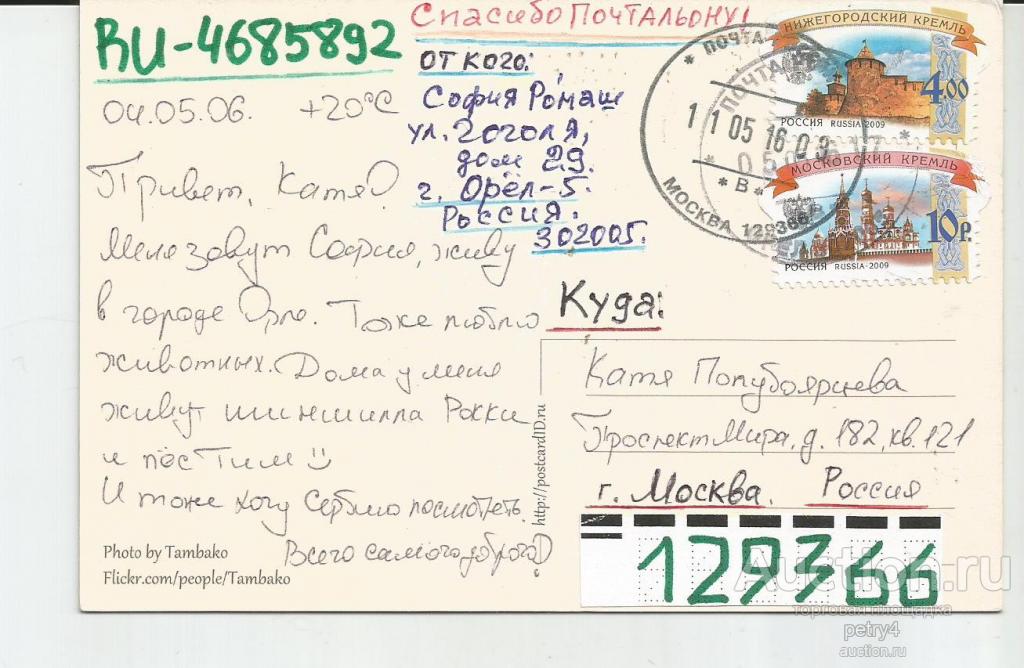 RU-4685892
Спасибо Почтальону!
04.05.06. +20°C
Привет, Катя!
Меня зовут София, живу
в городе Орле. Тоже люблю
животных. Дома у меня
живут шиншилла Рокки
и пёс Тим
И тоже хочу Сербию посмотреть.
Всего самого доброго!
Photo by Tambako
Flickr.com/people/Tambako
http://postcardID.ru
от кого:
София Ромаш
ул. Гоголя,
дом 29.
г. Орёл-5.
Россия.
302005.
НИЖЕГОРОДСКИЙ КРЕМЛЬ
4,00
РОССИЯ RUSSIA·2009
МОСКОВСКИЙ КРЕМЛЬ
10 р.
РОССИЯ RUSSIA·2009
* ПОЧТА
11 05 16 09
* В *
МОСКВА 129366
ПОЧТА
Куда:
Катя
Проспект Мира, д. 182, кв. 121
г. Москва. Россия
129366
Auction.ru
торговая площадка
petry4
auction.ru